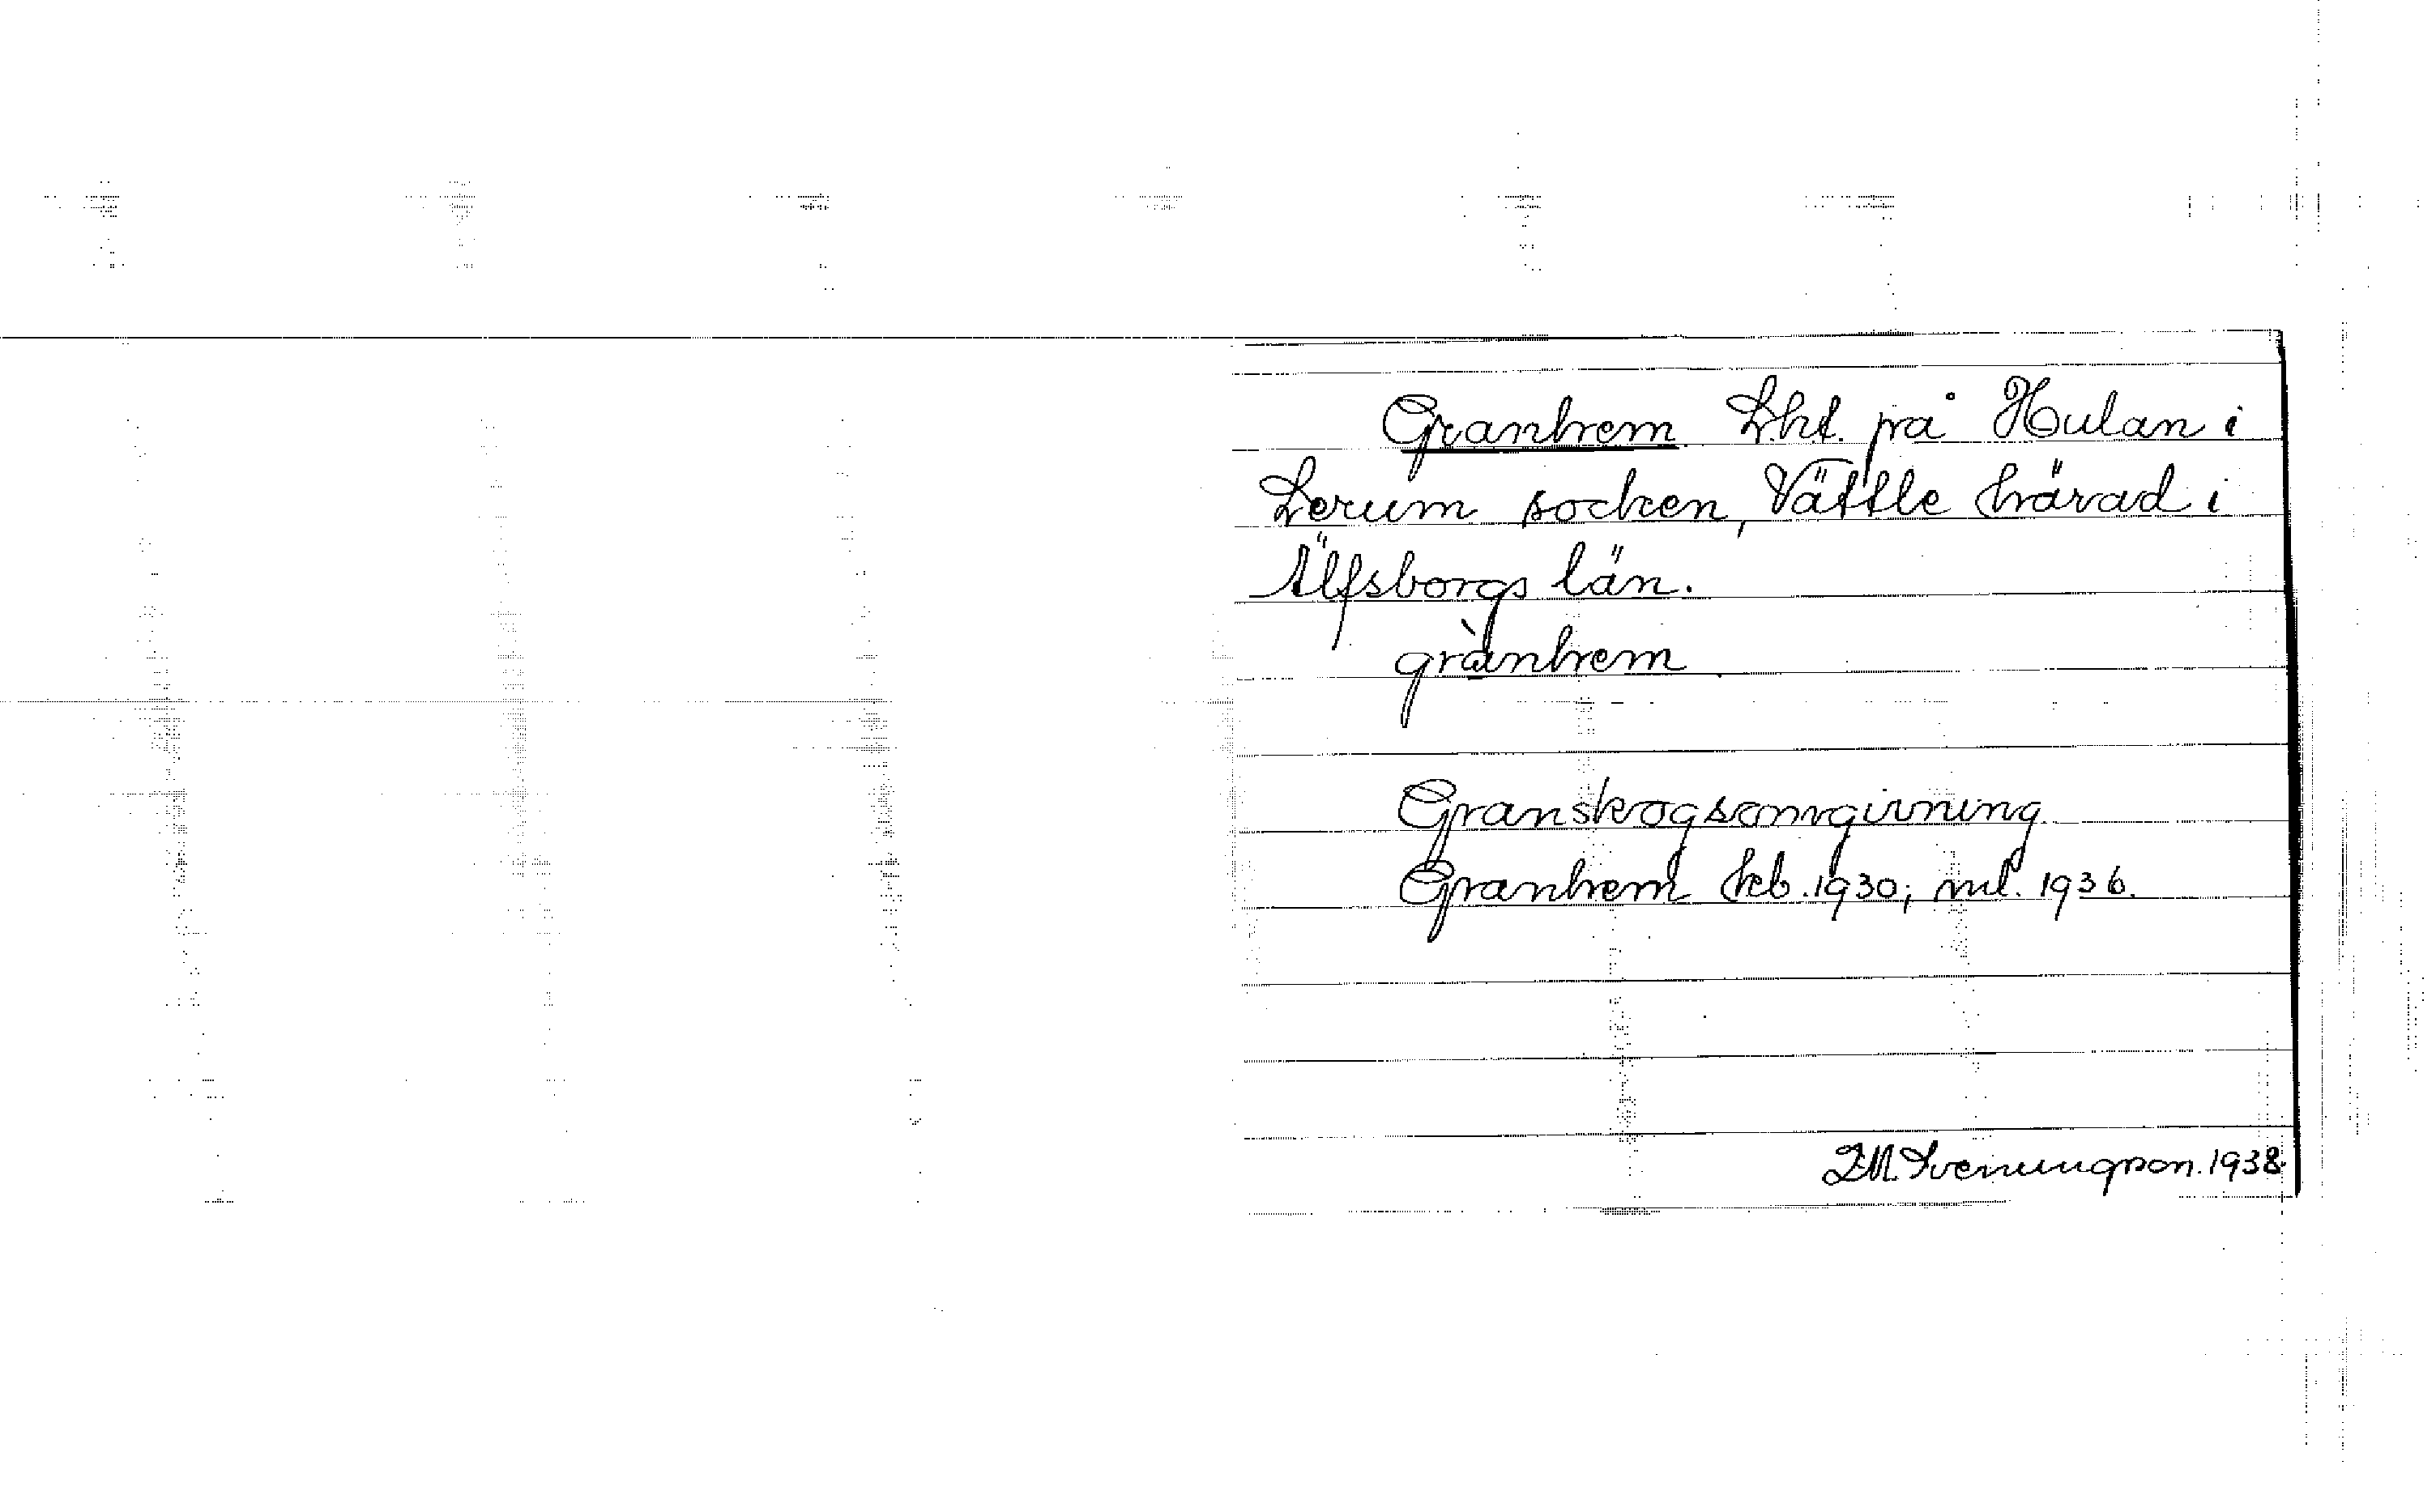 Granhem Lht. på Hulan i
Lerum socken, Vättle härad i
Älfsborgs län.
grànhem
Granskogsomgivning
Granhem heb. 1930; ml. 1936.
I.M. Svenungson. 1938